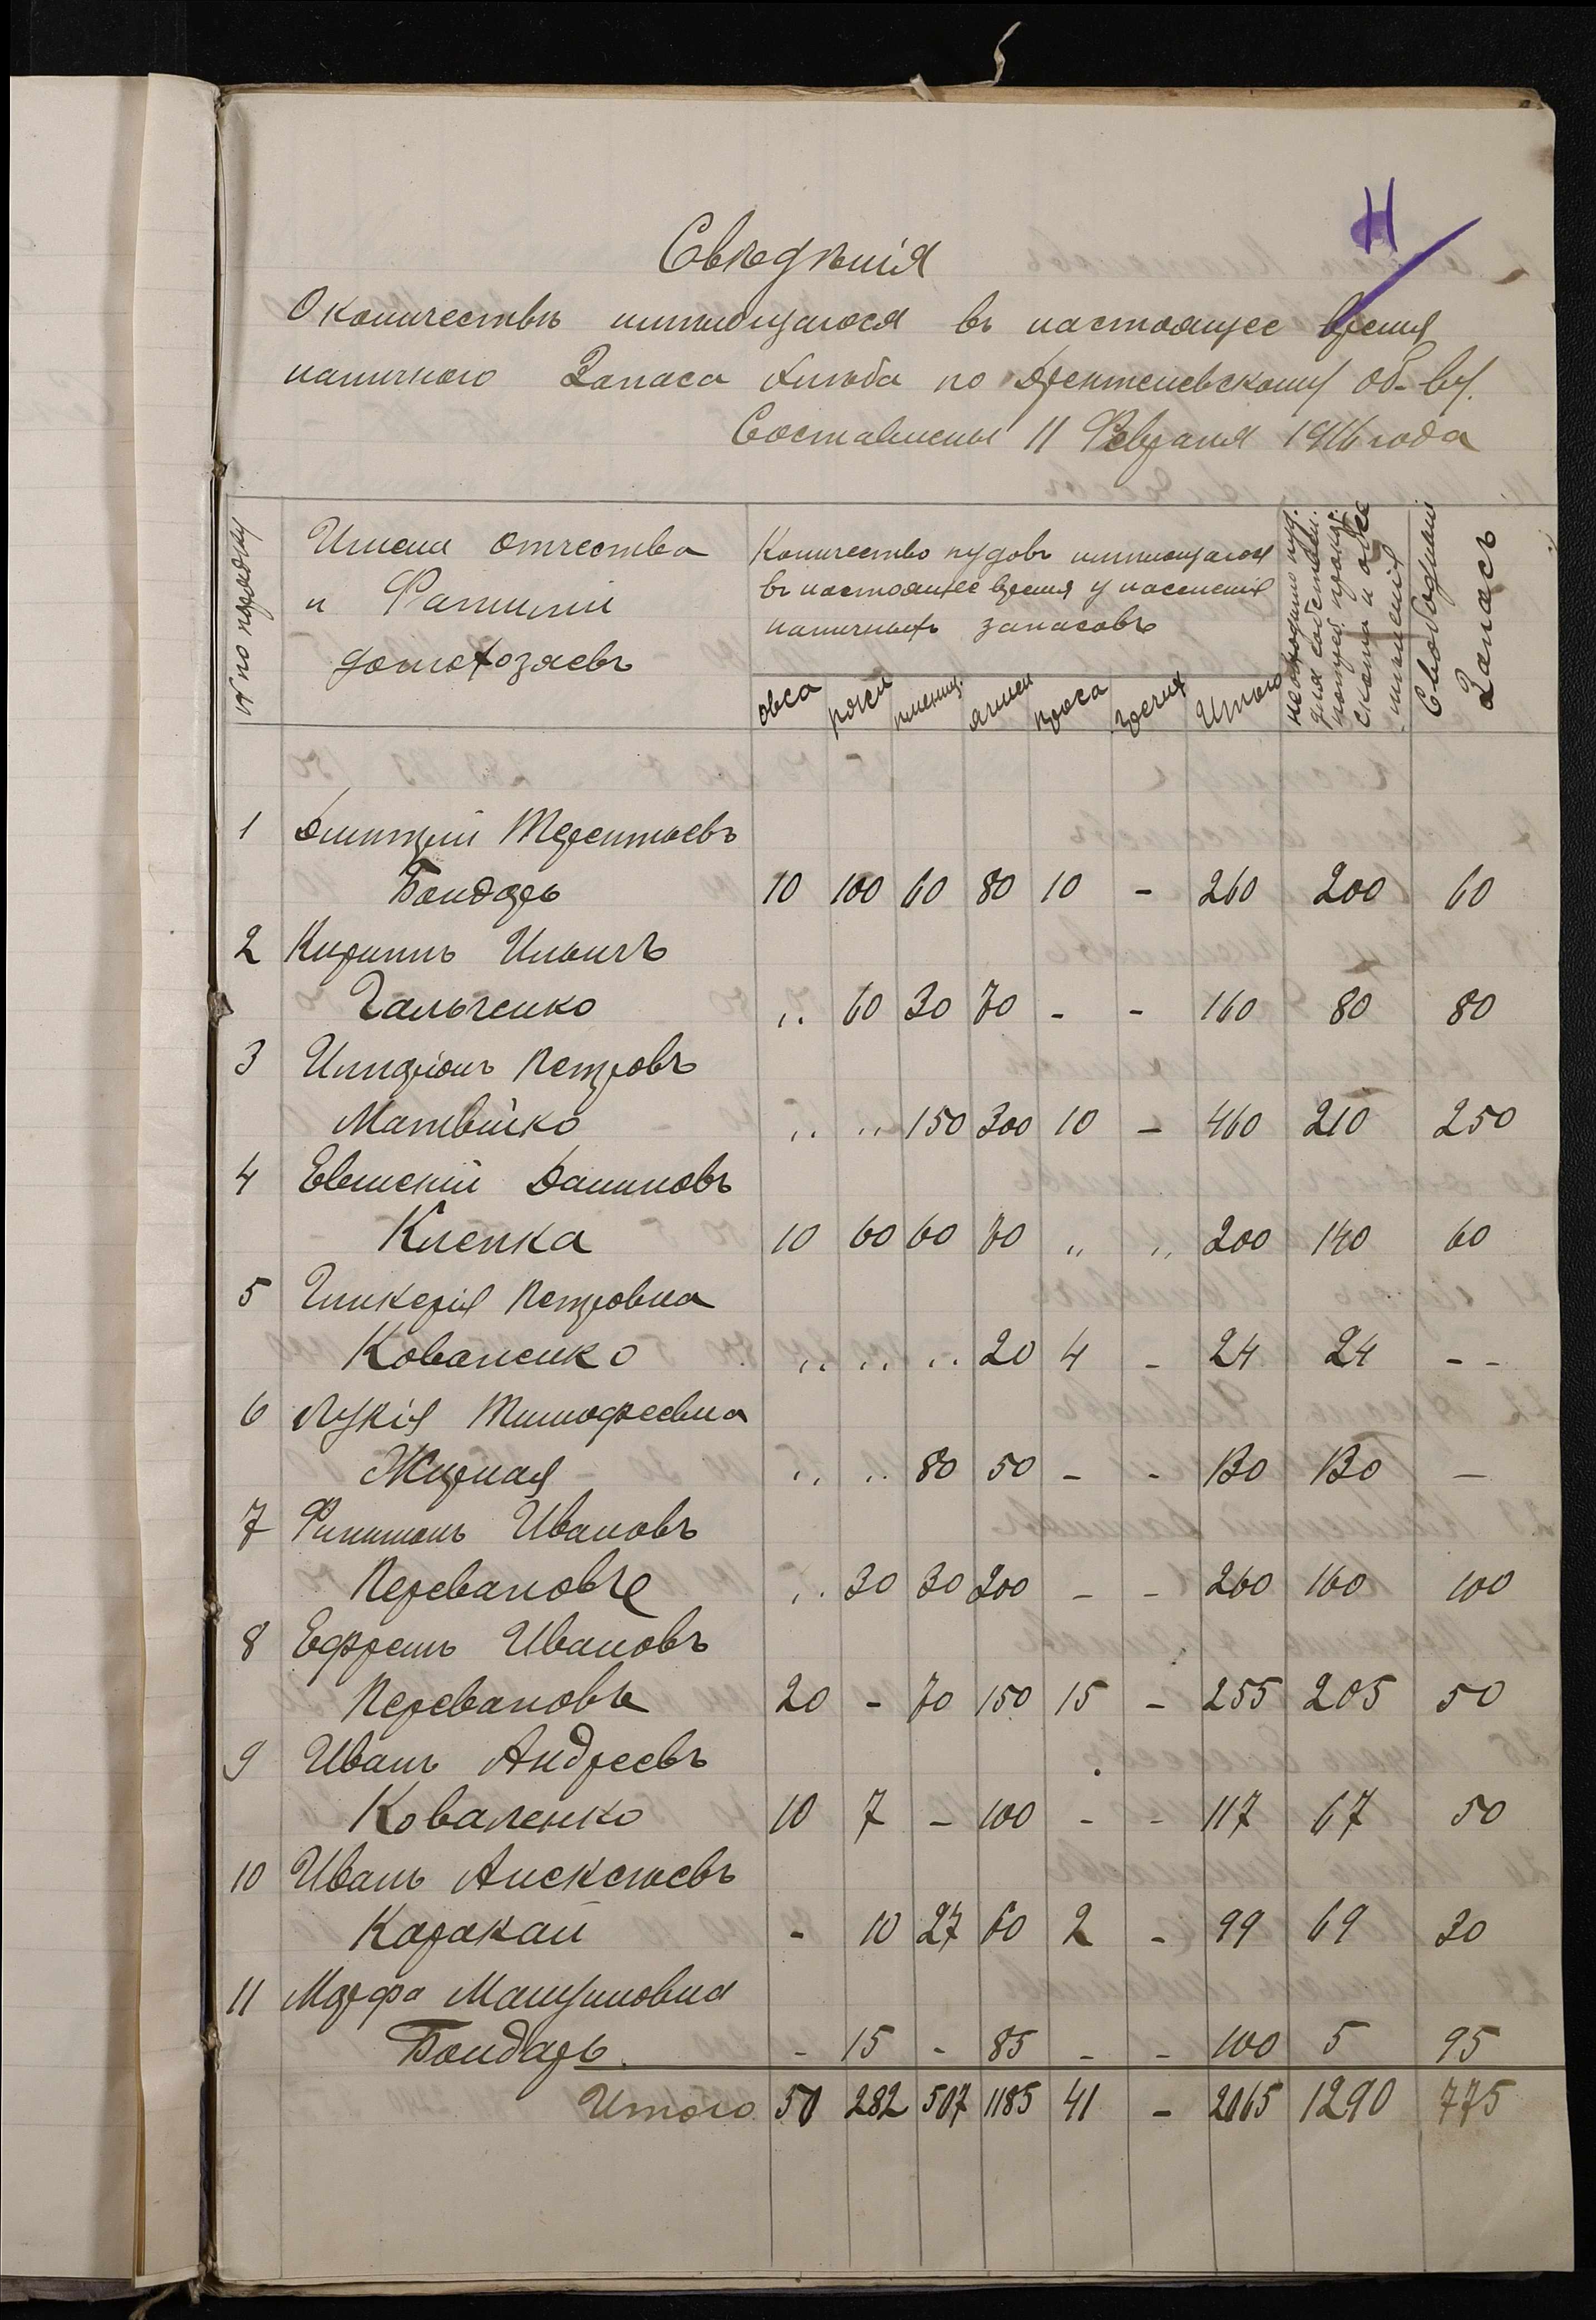 Свѣдѣнія
О количествѣ имѣющагося въ настоящее время
наличного Запаса хлѣба по Дрентелевскому об-ву.
Составлены 11 Февраля 1916 года
№ по порядку
Имена отчества
и Фамиліи
домохозяевъ
Количество пудовъ имѣющагося
въ настоящее время у населенія
наличныхъ запасовъ
необходимо пуд.
для собствен.
скота и обсѣ
мененія
Свободный
Запасъ
овса ржи пшениц. ячмен проса Итого
1 Дмитрій Терентьевъ
Бондарь 10 100 60 80 10 - 260 200 60
2 Кириллъ Ильичъ
Гальченко ,, 60 30 70 - - 160 80 80
3 Илларіонъ Петровъ
Матвійко ,, ,, 150 300 10 - 460 210 250
4 Евменій Даниловъ
Клепка 10 60 60 70 ,, ,, 200 140 60
5 Гликерія Петровна
Коваленко ,, ,, ,, 20 4 - 24 24 - -
6 Лукія Тимофеевна
Жирная ,, ,, 80 50 - - 130 130 -
7 Филимонъ Ивановъ
Перевалов ,, 30 30 200 - - 260 160 100
8 Ефремъ Ивановъ
Перевалов 20 - 70 150 15 - 255 205 50
9 Иванъ Андреевъ
Коваленко 10 7 - 100 - - 117 67 50
10 Иванъ Алексѣевъ
Каракай - 10 27 60 2 - 99 69 30
11 Марфа Мануиловна
Бондарь. - 15 - 85 - - 100 5 95
Итого 50 282 507 1185 41 - 2065 1290 775